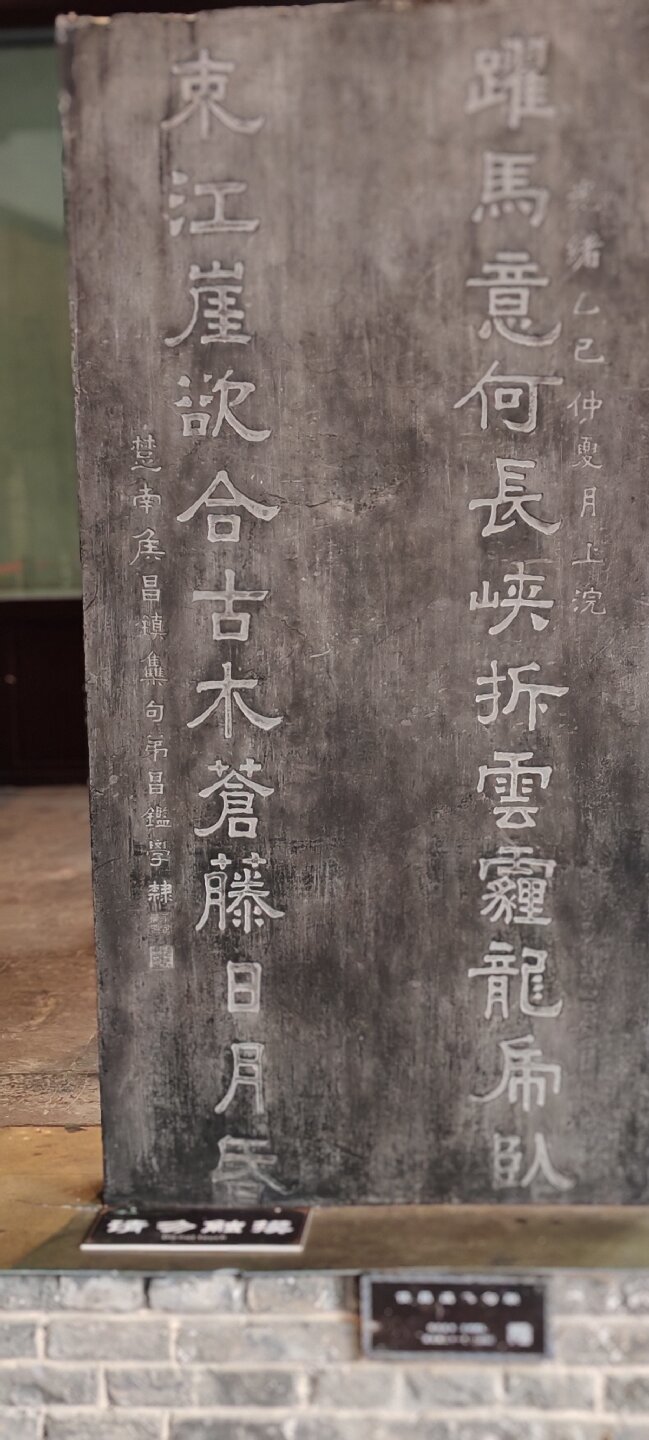 光緒乙巳仲夏月上浣
躍馬意何長峽拆雲霾龍虎臥
束江崖欲合古木蒼藤日月昏
楚南侯昌鎮集句弟昌鑑學隸
請勿触摸